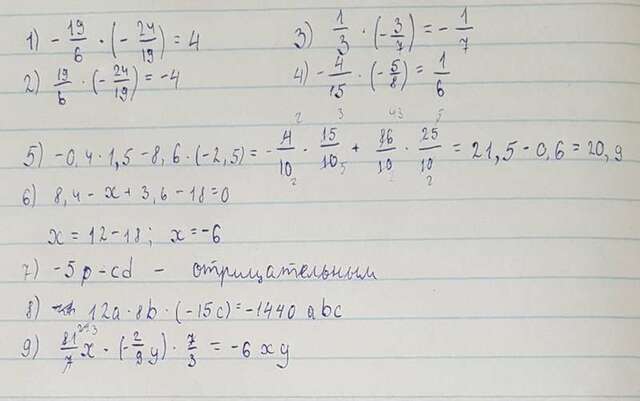 1) - 19/6 · (- 24/19) = 4
3) 1/3 · (- 3/7) = - 1/7
2) 19/6 · (- 24/19) = -4
4) - 4/15 · (- 5/8) = 1/6
5) -0,4 · 1,5 - 8,6 · (-2,5) = - 4/10 · 15/10 + 86/10 · 25/10 = 21,5 - 0,6 = 20,9
6) 8,4 - x + 3,6 - 18 = 0
x = 12 - 18; x = -6
7) -5p - cd - отрицательным
8) 12a · 8b · (-15c) = -1440 abc
9) 81/7 x · (- 2/9 y) · 7/3 = -6 xy